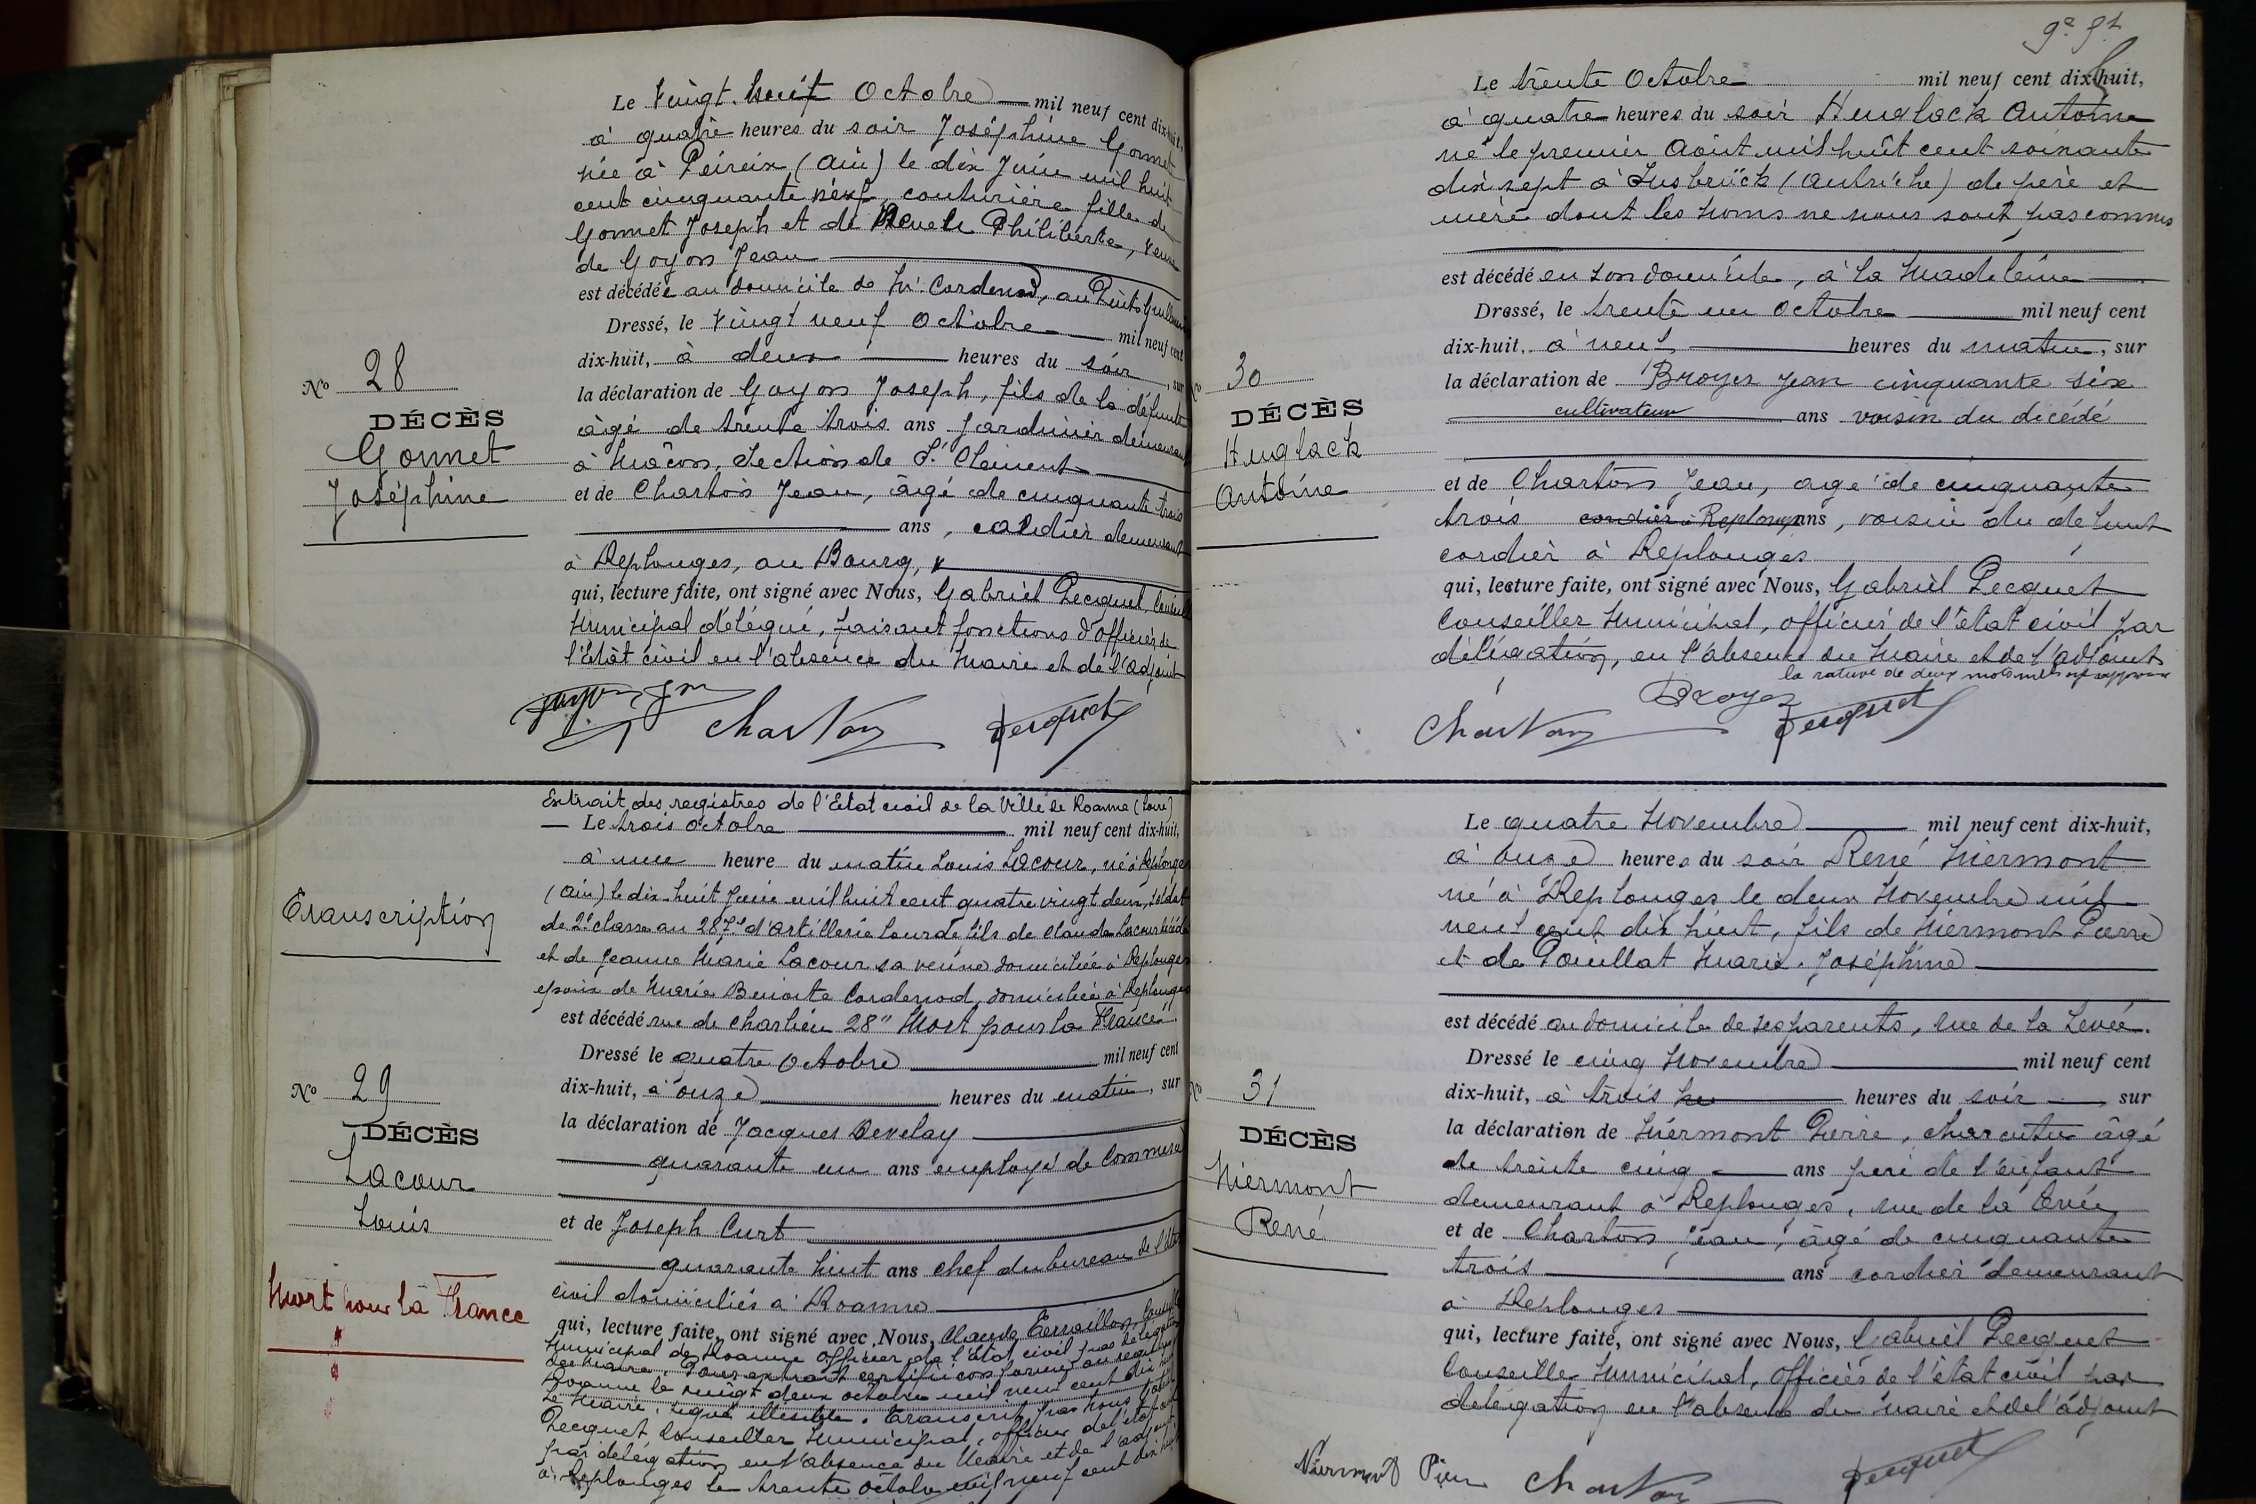 Le Vingt-huit Octobre mil neuf cent dix-huit,
à quatre heures du soir Joséphine Gonnet
née à Péireix (Ain) le dix Juin mil huit
cent cinquante neuf, couturière fille de
Gonnet Joseph et de Philiberte, veuve
de Goyon Jean
est décédée au domicile de Mr. Cordenod, au Puits Guillemin
Dressé, le Vingt neuf Octobre mil neuf cent
dix-huit, à deux heures du soir, sur
No 28
la déclaration de Goyon Joseph, fils de la défunte
DÉCÈS
âgé de trente trois ans Jardinier demeurant
Gonnet
à Mâcon, Section de St Clément
Joséphine
et de Charton Jean, âgé de cinquante trois
ans, cordier demeurant
à Replonges, au Bourg,
qui, lecture faite, ont signé avec Nous, Gabriel Pecquet, Conseiller
Municipal délégué, faisant fonctions d'officier de
l'Etat civil en l'absence du Maire et de l'adjoint
Charton Pecquet
Extrait des registres de l'Etat civil de la Ville de Roanne (Loire)
Le trois Octobre mil neuf cent dix-huit,
à une heure du matin Louis Lacour, né à Replonges
Transcription
(Ain) le dix-huit Juin mil huit cent quatre vingt deux, soldat
de 2e classe au 287e d'artillerie lourde fils de Claude Lacour décédé
et de Jeanne Marie Lacour sa veuve domiciliée à Replonges
époux de Marie Benoite Cordenod, domiciliée à Replonges
est décédé rue de Charlieu 28 "Mort pour la France"
Dressé le quatre Octobre mil neuf cent
No 29
dix-huit, à onze heures du matin, sur
DÉCÈS
la déclaration de Jacques Develay
Lacour
quarante un ans employé de Commerce
Louis
et de Joseph Curt
quarante huit ans chef du bureau de l'Etat
Mort pour la France
civil domiciliés à Roanne
qui, lecture faite, ont signé avec Nous, Claude Terraillon, Conseiller
Municipal de Roanne officier de l'Etat civil par délégation
du Maire. Pour extrait certifié conforme au registre
Roanne le vingt deux octobre mil neuf cent dix huit
Le Maire, signé illisible. Transcrit par nous Gabriel
Pecquet Conseiller Municipal, officier de l'état civil
par délégation en l'absence du Maire et de l'adjoint
à Replonges le trente Octobre mil neuf cent dix huit
Le trente Octobre mil neuf cent dix-huit,
à quatre heures du soir Huglack Antoine
né le premier Août mil huit cent soixante
dix sept à Insbrück (Autriche) de père et
mère dont les noms ne nous sont pas connus
est décédé en son domicile, à la Madeleine
Dressé, le trente un Octobre mil neuf cent
dix-huit, à neuf heures du matin, sur
No 30
la déclaration de Broyer Jean cinquante six
DÉCÈS
cultivateur ans voisin du décédé
Huglack
Antoine
et de Charton Jean, âgé de cinquante
trois cordier à Replonges ans, voisin du défunt
cordier à Replonges
qui, lecture faite, ont signé avec Nous, Gabriel Pecquet
Conseiller Municipal, officier de l'état civil par
délégation, en l'absence du Maire et de l'adjoint
la rature de deux mots nuls approuvée
Broyer
Charton Pecquet
Le quatre Novembre mil neuf cent dix-huit,
à onze heures du soir René Niermont
né à Replonges le deux Novembre mil
neuf cent dix huit, fils de Niermont Pierre
et de Pouillat Marie-Joséphine
est décédé au domicile de ses parents, rue de la Levée.
Dressé le cinq Novembre mil neuf cent
No 31
dix-huit, à trois heures du soir, sur
DÉCÈS
la déclaration de Niermont Pierre, charcutier âgé
Niermont
de trente cinq ans père de l'enfant
René
demeurant à Replonges, rue de la Levée
et de Charton Jean, âgé de cinquante
trois ans cordier demeurant
à Replonges
qui, lecture faite, ont signé avec Nous, Gabriel Pecquet
Conseiller Municipal, Officier de l'état civil par
délégation en l'absence du Maire et de l'adjoint
Niermont Pierre Charton Pecquet